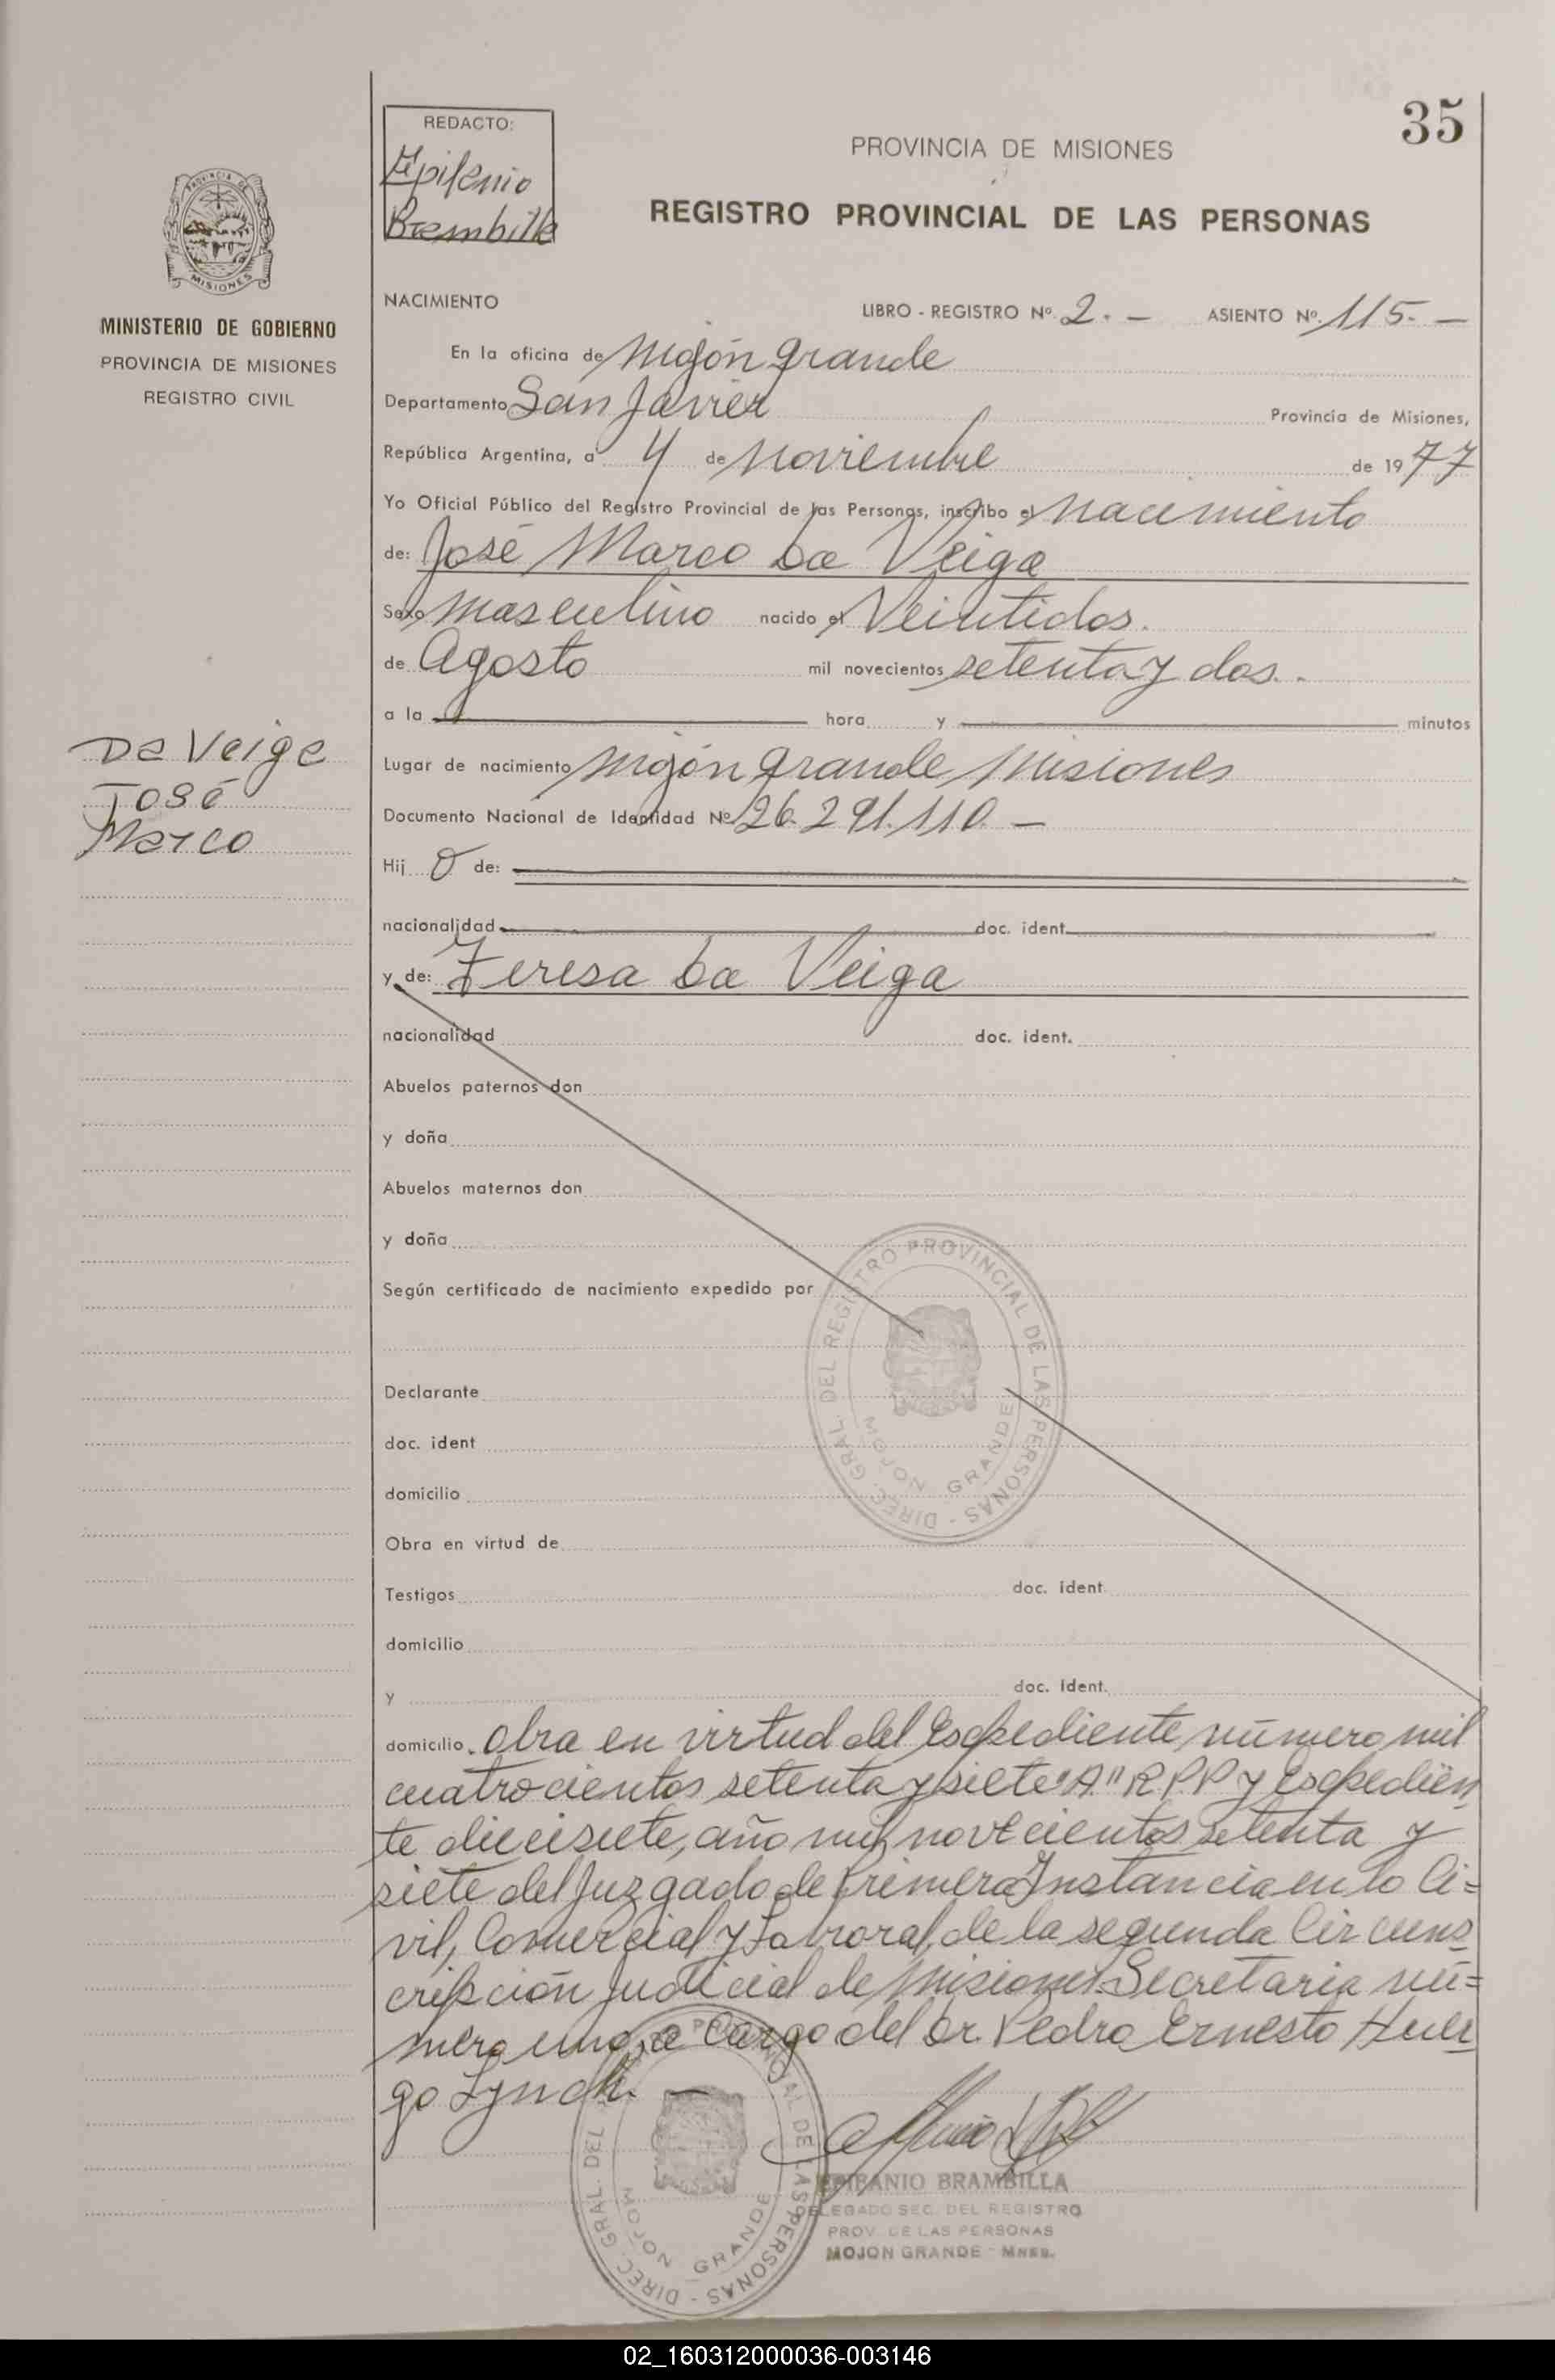 35
REDACTO:
Epifenio
Brembilla
PROVINCIA DE MISIONES
REGISTRO PROVINCIAL DE LAS PERSONAS
PROVINCIA DE
MISIONES
MINISTERIO DE GOBIERNO
PROVINCIA DE MISIONES
REGISTRO CIVIL
NACIMIENTO LIBRO - REGISTRO Nº 2. - ASIENTO Nº 115. -
En la oficina de Mojón grande
Departamento San Javier Provincia de Misiones,
República Argentina, a 4 de Noviembre de 1977
Yo Oficial Público del Registro Provincial de las Personas, inscribo el Nacimiento
de: José Marco Da Veiga
Sexo Masculino nacido el Veintidos.
de Agosto mil novecientos setenta y dos. -
a la hora y minutos
Da Veiga
José
Marco
Lugar de nacimiento Mojón grande Misiones
Documento Nacional de Identidad Nº 26.291.110. -
Hij o de:
nacionalidad doc. ident.
y de: Teresa Da Veiga
nacionalidad doc. ident.
Abuelos paternos don
y doña
Abuelos maternos don
y doña
Según certificado de nacimiento expedido por
DIREC. GRAL. DEL REGISTRO PROVINCIAL DE LAS PERSONAS -
MOJON GRANDE
Declarante
doc. ident
domicilio
Obra en virtud de
Testigos doc. ident
domicilio
y doc. ident.
domicilio. Obra en virtud del Escpediente número mil
cuatrocientos setenta y siete "A" R.P.P y Escpedien
te diecisiete, año mil novecientos setenta y
siete del Juzgado de Primera Instancia en lo Ci=
vil, Comercial y Laboral, de la segunda Circuns
cripción Judicial de Misiones. Secretaria nú=
mero uno, a Cargo del Dr. Pedro Ernesto Huer
go Lynch. -
DIREC. GRAL. DEL PROVINCIAL DE LAS PERSONAS -
MOJON GRANDE
EPIFANIO BRAMBILLA
DELEGADO SEC. DEL REGISTRO
PROV. DE LAS PERSONAS
MOJON GRANDE - MNES.
02_160312000036-003146